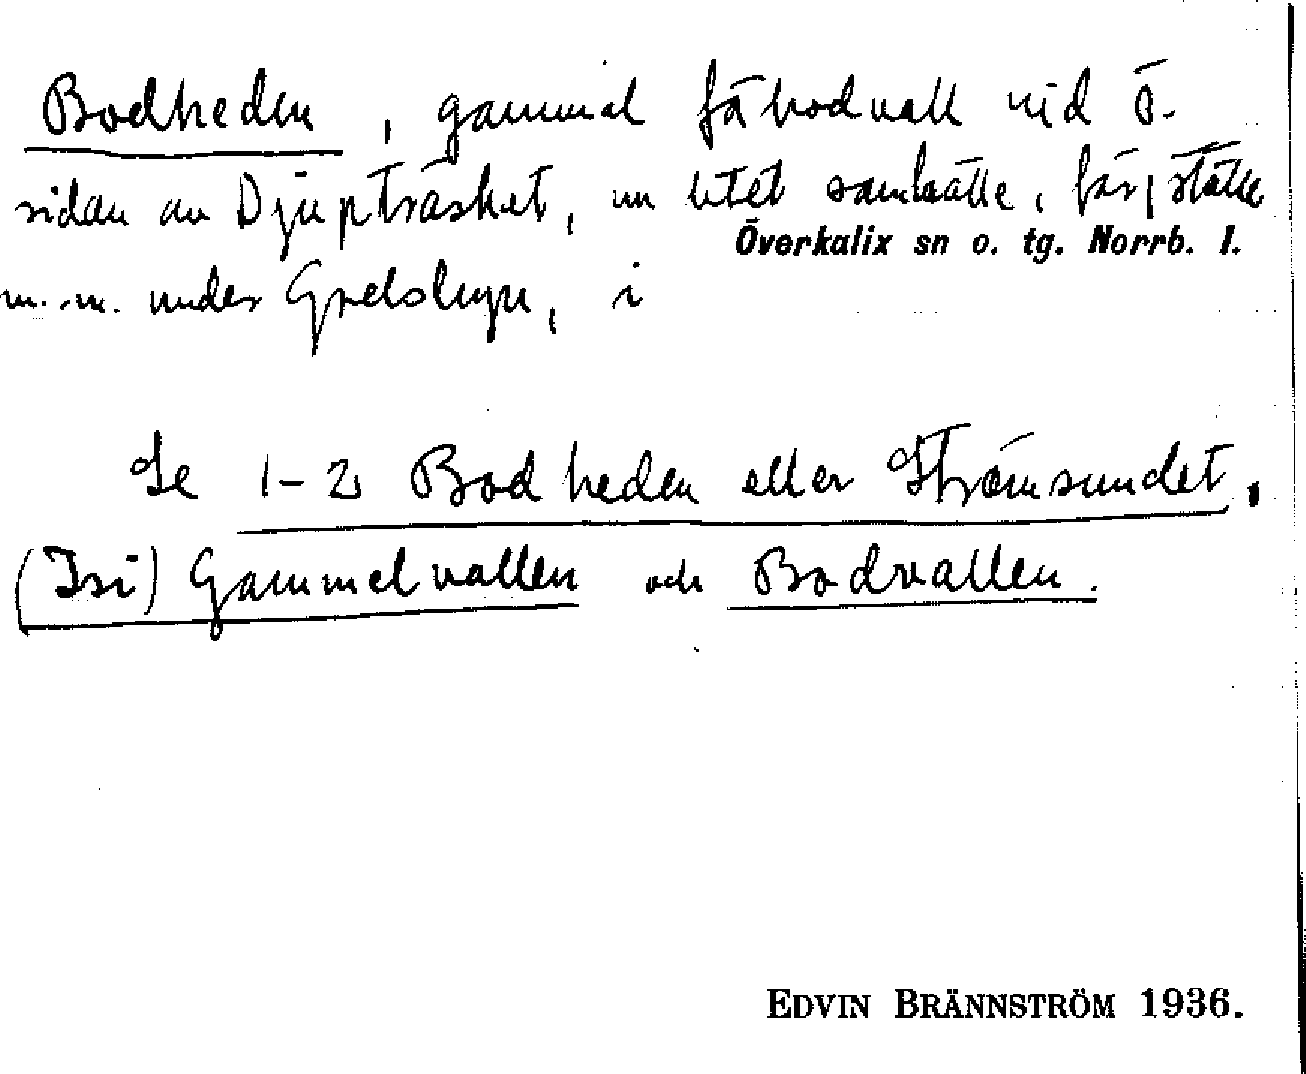 Bodheden, gammal fäbodvall vid ö.
sidan av Djupträsket, nu litet samhälle, färjställe
Överkalix sn o. tg. Norrb. l.
m. m. under Grelsbyn, i
Se 1-2 Bodheden eller Strömsundet,
(Isi) Gammelvallen och Bodvallen.
EDVIN BRÄNNSTRÖM 1936.